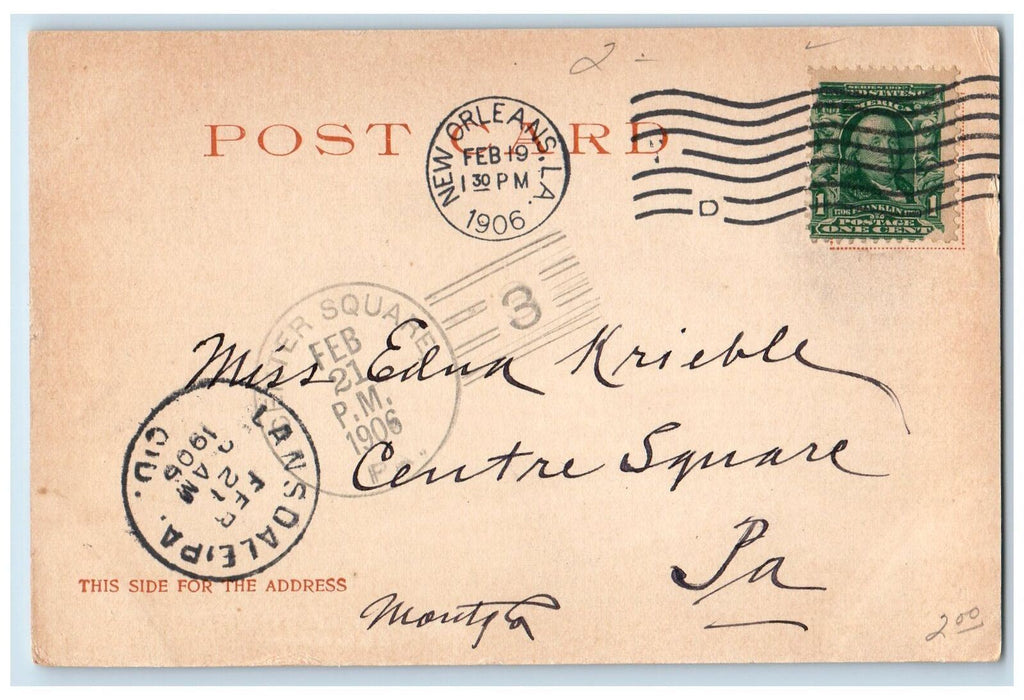 2 -
POST CARD
NEW ORLEANS, LA.
FEB 19
1 30 PM
1906
D
SERIES 1902
UNITED STATES OF
AMERICA
1 FRANKLIN 1
POSTAGE
ONE CENT
3
CENTER SQUARE
FEB
21
P.M.
1906
PA.
Miss Edna Krieble
Centre Square
Pa
LANSDALE, PA.
FEB
21
AM
1906
THIS SIDE FOR THE ADDRESS
2 00